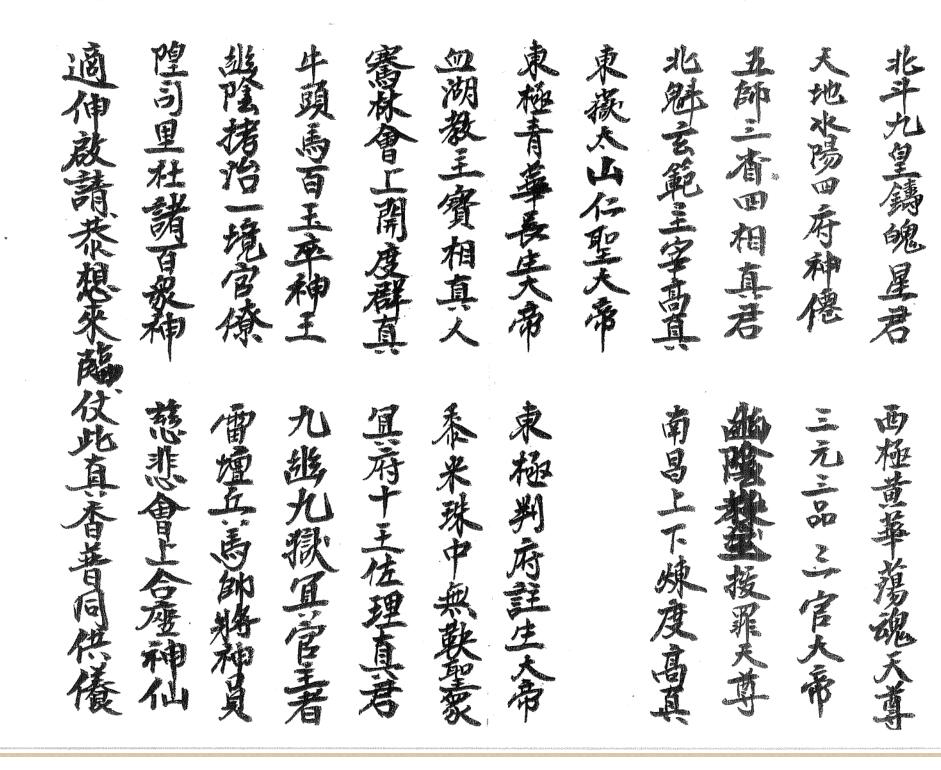 北斗九皇鑄魄星君　西極黄華蕩魂天尊
天地水陽四府神僊　三元三品三官大帝
五師三省四相真君　幽陰教主拔罪天尊
北魁玄範主宰高真　南昌上下煉度高真
東嶽太山仁聖大帝
東極青華長生大帝　東極判府註生大帝
血湖教主寶相真人　黍米珠中無鞅聖衆
騫林會上開度群真　冥府十王佐理真君
牛頭馬百玉卒神王　九幽九獄冥官主者
幽陰拷治一境官僚　雷壇兵馬帥將神員
隍司里社諸百衆神　慈悲會上合座神仙
適伸啟請恭想來臨仗此真香普同供養